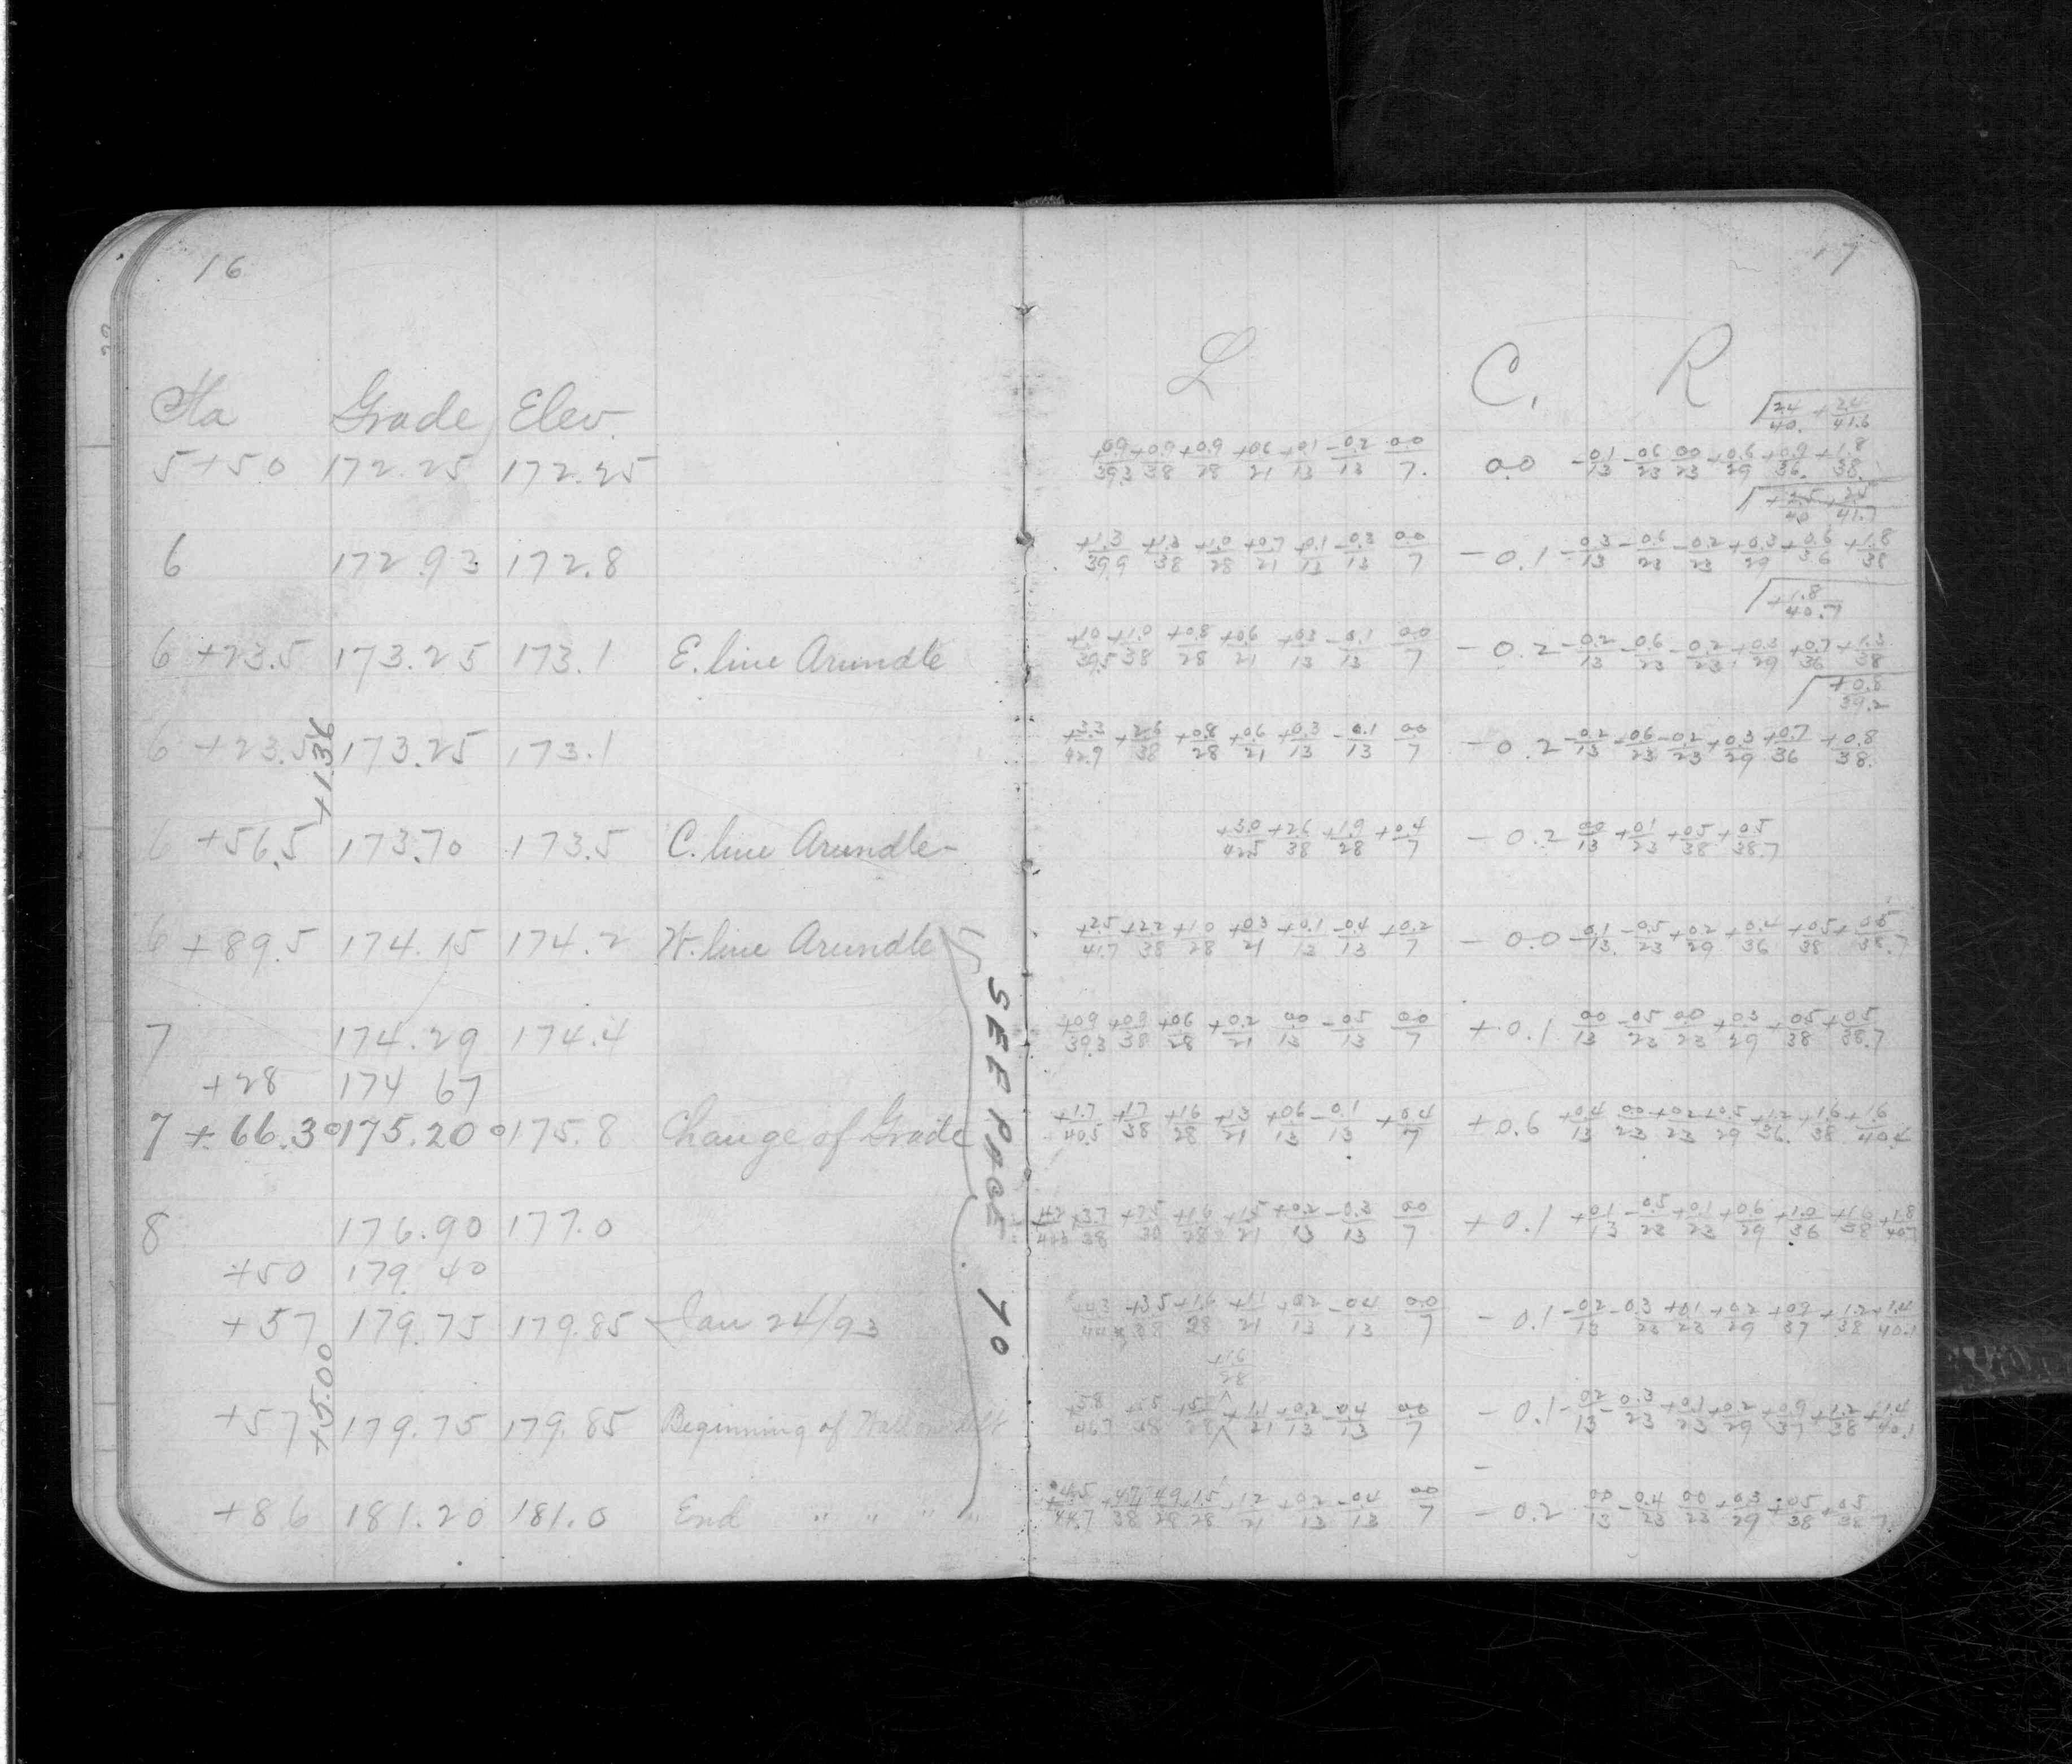 16
Sta Grade Elev.
5+50 172.25 172.25
6 172.93 172.8
6 +23.5 173.25 173.1 E. line Arundle
6 +23.5 173.25 173.1
+1.36
6 +56.5 173.70 173.5 C. line Arundle
6 +89.5 174.15 174.2 W. line Arundle
7 174.29 174.4
+28 174 67
7 + 66.30 175.20 175.8 Change of Grade
8 176.90 177.0
+50 179.40
+57 179.75 179.85 Jan 24/93
+5.00
+57 179.75 179.85 Beginning of Wall on left
+86 181.20 181.0 End " " " "
SEE PAGE 70
17
L C. R
2.4/40. +2.4/41.6
+0.9/39.3 +0.9/38 +0.9/28 +0.6/21 +0.1/13 -0.2/13 0.0/7. 0.0 -0.1/13 -0.6/23 0.0/23 +0.6/29 +0.9/36. +1.8/38.
+2.5/40 +2.5/41.7
+1.3/39.9 +1.3/38 +1.0/28 +0.7/21 +0.1/13 -0.3/13 0.0/7 -0.1 -0.3/13 -0.6/23 -0.2/23 +0.3/29 +0.6/36 +1.8/38
+1.8/40.7
+1.0/39.5 +1.0/38 +0.8/28 +0.6/21 +0.3/13 -0.1/13 0.0/7 -0.2 -0.2/13 -0.6/23 -0.2/23 +0.3/29 +0.7/36 +1.3/38
+0.8/39.2
+3.3/42.9 +2.6/38 +0.8/28 +0.6/21 +0.3/13 -0.1/13 0.0/7 -0.2 -0.2/13 -0.6/23 -0.2/23 +0.3/29 +0.7/36 +0.8/38.
+3.0/42.5 +2.6/38 +1.9/28 +0.4/7 -0.2 0.0/13 +0.1/23 +0.5/38 +0.5/38.7
+2.5/41.7 +2.2/38 +1.0/28 +0.3/21 +0.1/13 -0.4/13 +0.2/7 -0.0 -0.1/13 -0.5/23 +0.2/29 +0.4/36 +0.5/38 +0.5/38.7
+0.9/39.3 +0.9/38 +0.6/28 +0.2/21 0.0/13 -0.5/13 0.0/7 +0.1 0.0/13 -0.5/23 0.0/23 +0.3/29 +0.5/38 +0.5/38.7
+1.7/40.5 +1.7/38 +1.6/28 +1.3/21 +0.6/13 -0.1/13 +0.4/7 +0.6 +0.4/13 0.0/23 +0.2/23 +0.5/29 +1.2/36. +1.6/38 +1.6/40.4
+3.7/38 +1.6/28 +1.5/21 +0.2/13 -0.3/13 0.0/7 +0.1 +0.1/13 -0.5/23 +0.1/23 +0.6/29 +1.0/36 +1.6/38 +1.8/40.7
+3.5/38 +1.6/28 +1.1/21 +0.2/13 -0.4/13 0.0/7 -0.1 -0.2/13 -0.3/23 +0.1/23 +0.2/29 +0.9/37 +1.2/38 +1.4/40.1
+1.6/28
+5.8/46.7 +1.1/21 +0.2/13 -0.4/13 0.0/7 -0.1 -0.2/13 -0.3/23 +0.1/23 +0.2/29 +0.9/37 +1.2/38 +1.4/40.1
+4.7/38 +4.9/28 +1.5/28 +1.2/21 +0.2/13 -0.4/13 0.0/7 -0.2 0.0/13 -0.4/23 0.0/23 +0.3/29 +0.5/38 +0.5/38.7